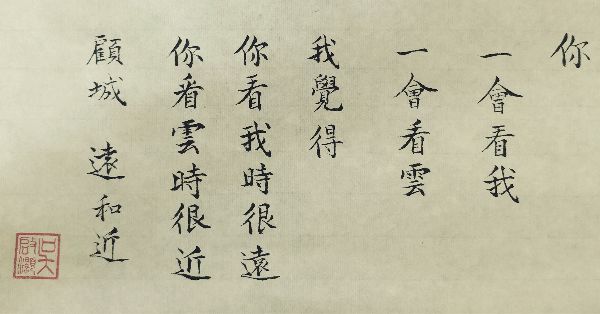 你
一會看我
一會看雲
我覺得
你看我時很遠
你看雲時很近
顧城 遠和近